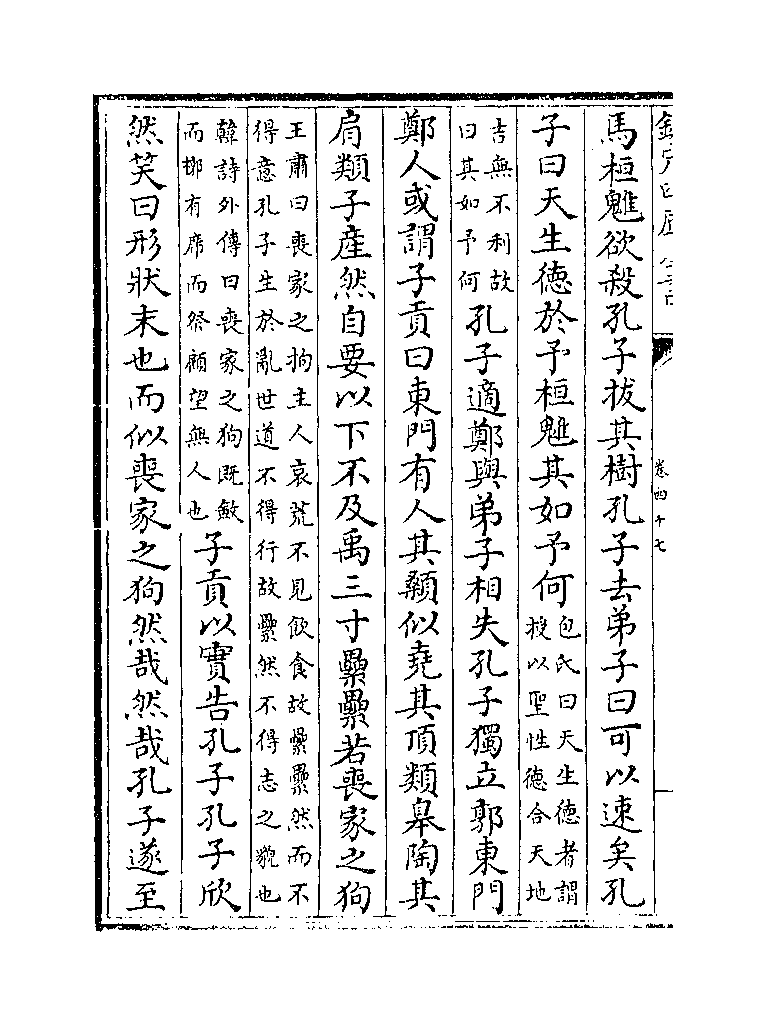 欽定四庫全書
卷四十七
馬桓魋欲殺孔子拔其樹孔子去弟子曰可以速矣孔
子曰天生德於予桓魋其如予何
包氏曰天生德者謂
授以聖性德合天地
吉無不利故
曰其如予何
孔子適鄭與弟子相失孔子獨立郭東門
鄭人或謂子貢曰東門有人其顙似堯其項類皋陶其
肩類子産然自要以下不及禹三寸纍纍若喪家之狗
王肅曰喪家之狗主人哀荒不見飲食故纍纍然而不
得意孔子生於亂世道不得行故纍然不得志之貌也
韓詩外傳曰喪家之狗既斂
而槨有席而祭顧望無人也
子貢以實告孔子孔子欣
然笑曰形狀末也而似喪家之狗然哉然哉孔子遂至